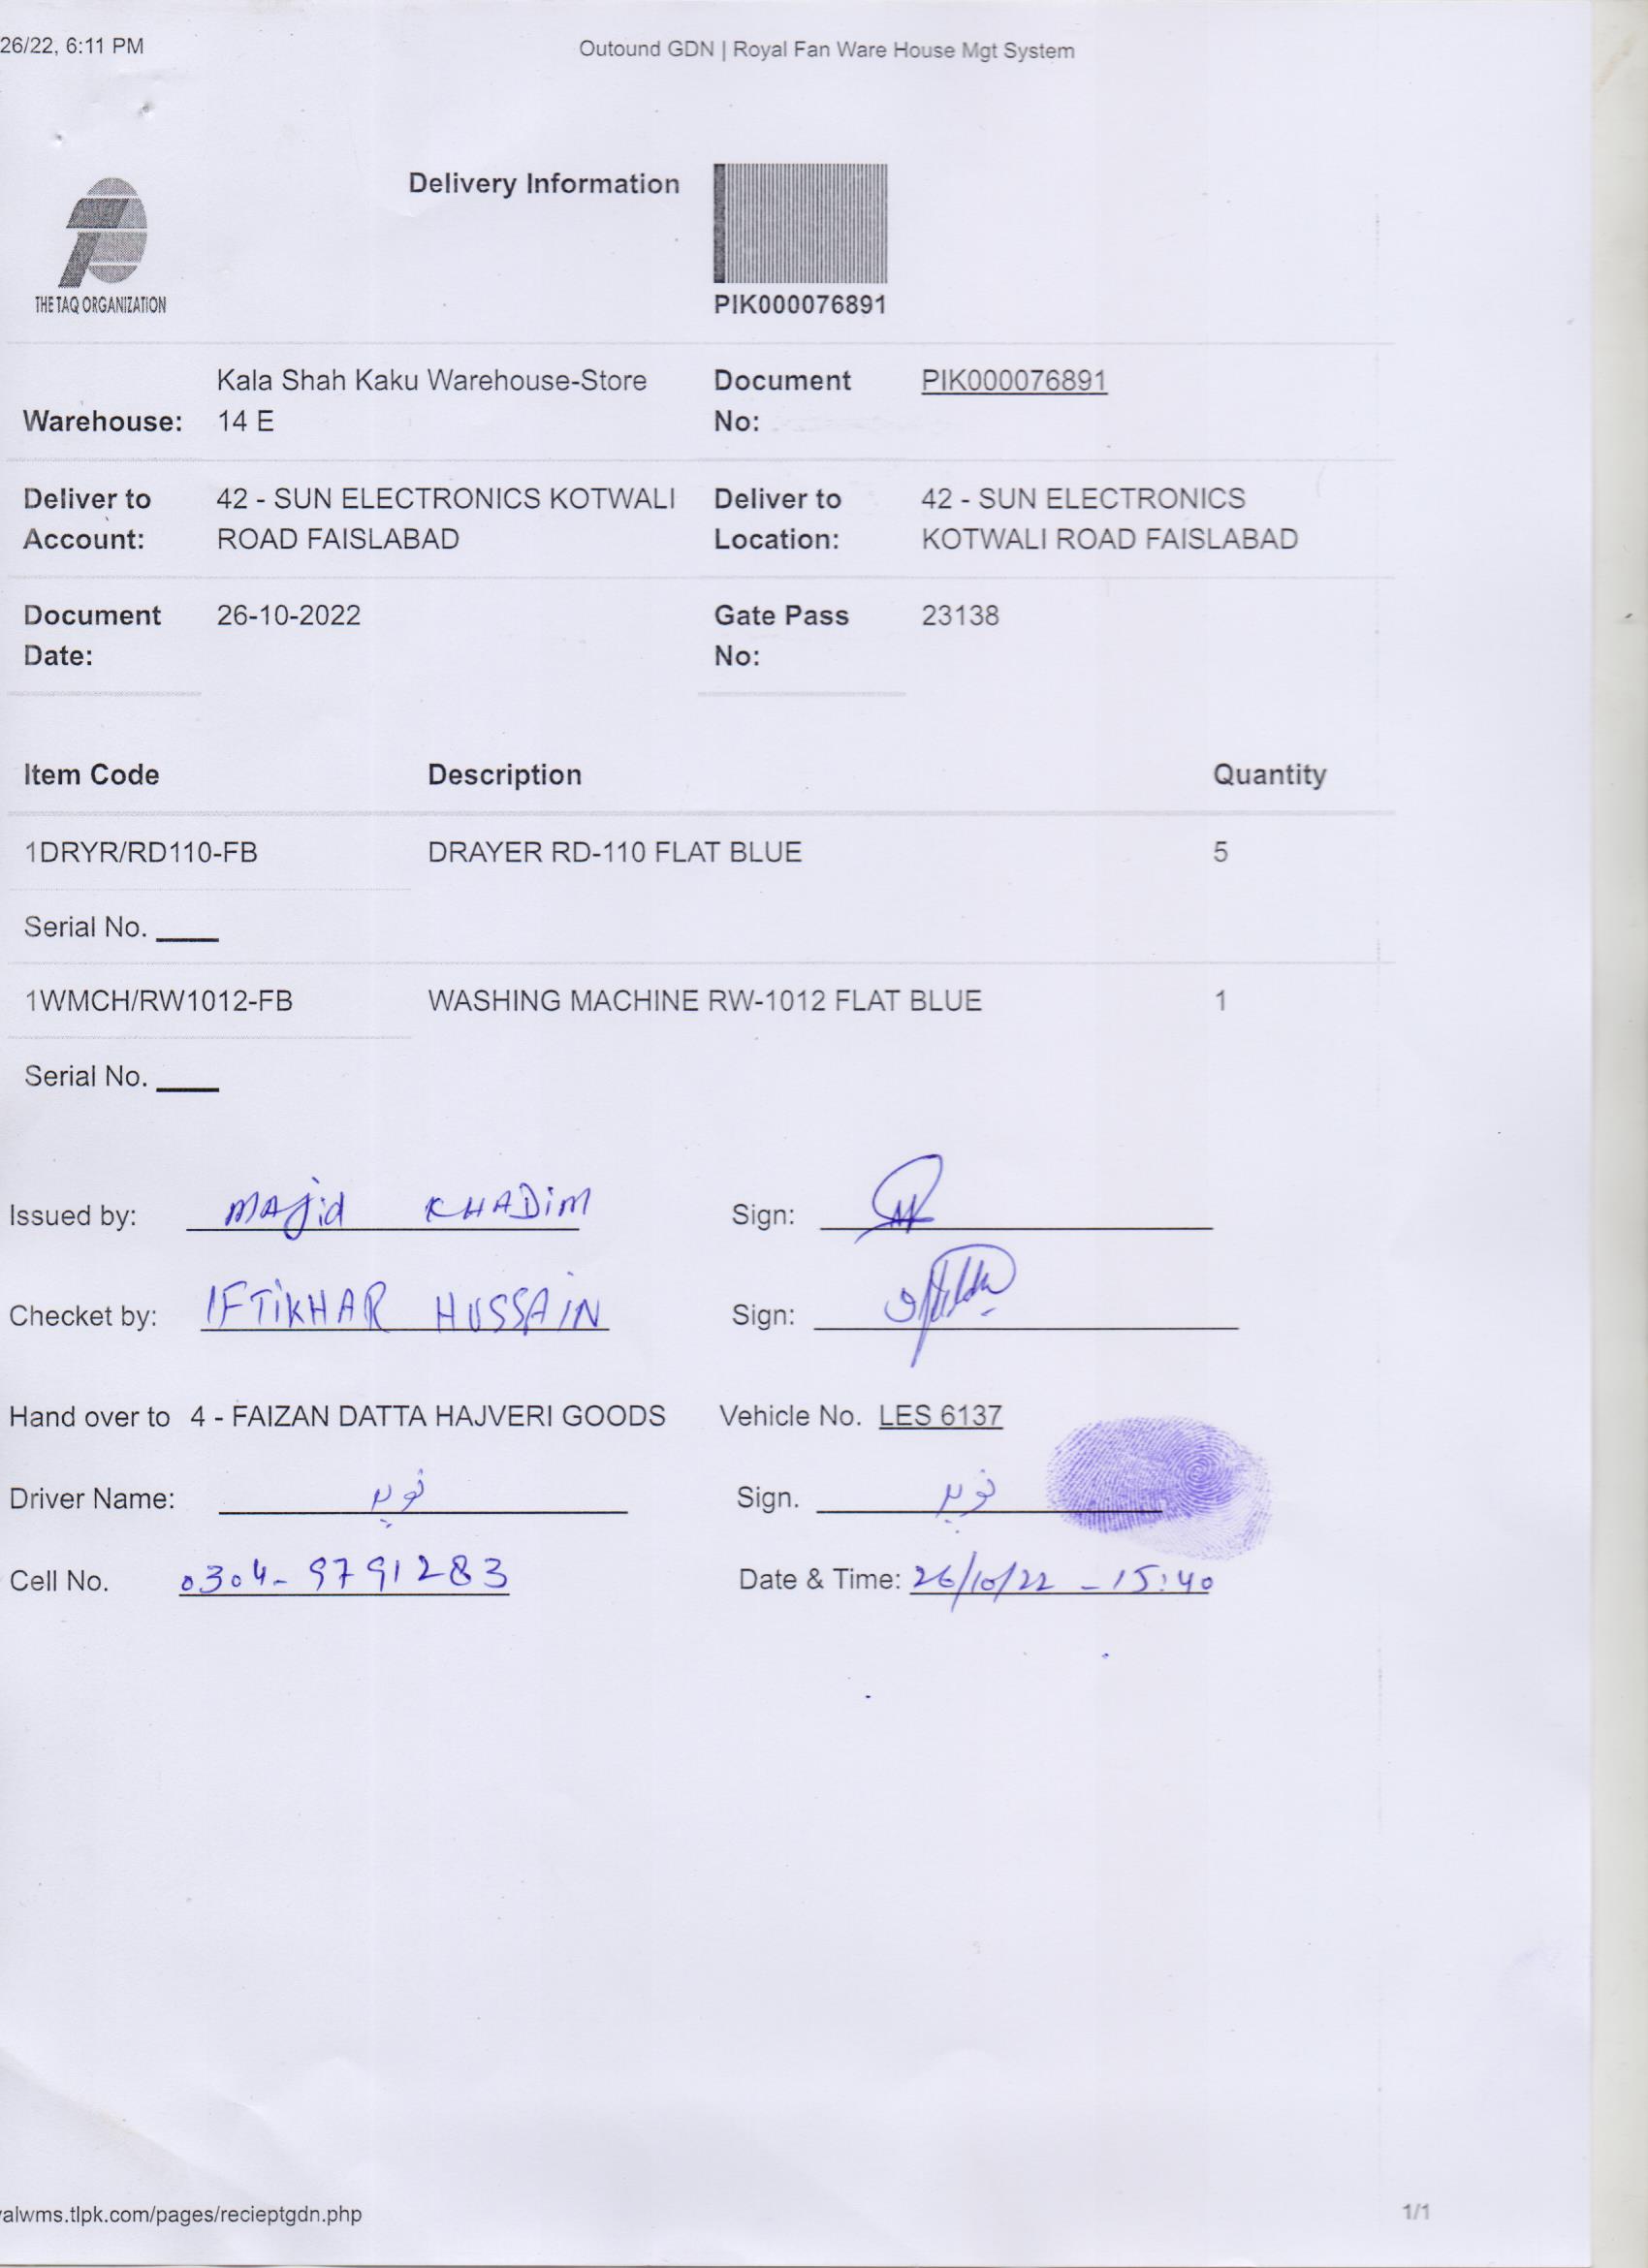 26/22, 6:11 PM Outound GDN | Royal Fan Ware House Mgt System
Delivery Information
THE TAQ ORGANIZATION
PIK000076891
Kala Shah Kaku Warehouse-Store Document PIK000076891
Warehouse: 14 E No:
Deliver to 42 - SUN ELECTRONICS KOTWALI Deliver to 42 - SUN ELECTRONICS
Account: ROAD FAISLABAD Location: KOTWALI ROAD FAISLABAD
Document 26-10-2022 Gate Pass 23138
Date: No:
Item Code Description Quantity
1DRYR/RD110-FB DRAYER RD-110 FLAT BLUE 5
Serial No.
1WMCH/RW1012-FB WASHING MACHINE RW-1012 FLAT BLUE 1
Serial No.
Issued by: MAJid KHADiM Sign:
Checket by: IFTiKHAR HUSSAIN Sign:
Hand over to 4 - FAIZAN DATTA HAJVERI GOODS Vehicle No. LES 6137
Driver Name: Sign.
Cell No. 0304-9791283 Date & Time: 26/10/22 - 15:40
alwms.tlpk.com/pages/recieptgdn.php 1/1